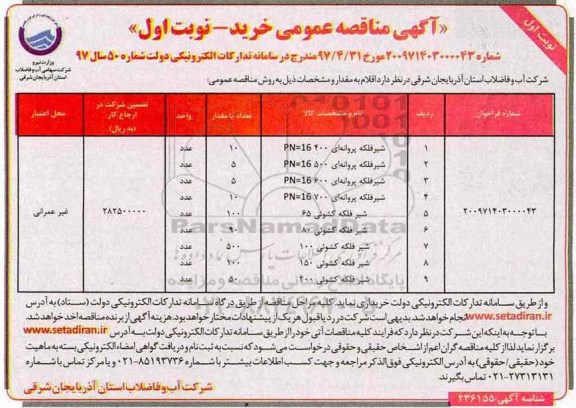 نوبت اول
«آگهی مناقصه عمومی خرید – نوبت اول»
شماره ۲۰۰۹۷۱۴۰۳۰۰۰۰۴۳ مورخ ۹۷/۴/۳۱ مندرج در سامانه تدارکات الکترونیکی دولت شماره ۵۰ سال ۹۷
وزارت نیرو
شرکت سهامی آب و فاضلاب
استان آذربایجان شرقی
شرکت آب و فاضلاب استان آذربایجان شرقی در نظر دارد اقلام به مقدار و مشخصات ذیل به روش مناقصه عمومی:
شماره فراخوان ردیف نام و مشخصات کالا تعداد یا مقدار واحد تضمین شرکت در ارجاع کار (به ریال) محل اعتبار
۲۰۰۹۷۱۴۰۳۰۰۰۰۴۳ ۲۸۲۵۰۰۰۰۰ غیر عمرانی
۱ شیرفلکه پروانه‌ای ۴۰۰ PN=16 ۱۰ عدد
۲ شیرفلکه پروانه‌ای ۵۰۰ PN=16 ۵ عدد
۳ شیرفلکه پروانه‌ای ۶۰۰ PN=16 ۵ عدد
۴ شیرفلکه پروانه‌ای ۷۰۰ PN=16 ۱۰ عدد
۵ شیر فلکه کشوئی ۶۵ ۱۰۰ عدد
۶ شیر فلکه کشوئی ۸۰ ۹۰ عدد
۷ شیر فلکه کشوئی ۱۰۰ ۵۰۰ عدد
۸ شیر فلکه کشوئی ۱۵۰ عدد
۹ شیر فلکه کشوئی ۲۰۰ ۵۰ عدد
ParsNamadData
و از طریق سامانه تدارکات الکترونیکی دولت خریداری نماید. کلیه مراحل مناقصه از طریق درگاه سامانه تدارکات الکترونیکی دولت (ستاد) به آدرس
www.setadiran.ir انجام خواهد شد. بدیهی است شرکت در رد یا قبول هر یک از پیشنهادات مختار خواهد بود. هزینه آگهی از برنده مناقصه اخذ خواهد شد.
با توجه به اینکه این شرکت در نظر دارد که فرآیند کلیه مناقصات آتی خود را از طریق سامانه تدارکات الکترونیکی دولت به آدرس www.setadiran.ir
برگزار نماید لذا از کلیه مناقصه گران اعم از اشخاص حقیقی و حقوقی درخواست می‌شود که نسبت به ثبت نام و دریافت گواهی امضاء الکترونیکی بسته به ماهیت
خود (حقیقی/حقوقی) به آدرس الکترونیکی فوق الذکر مراجعه و جهت کسب اطلاعات بیشتر با شماره ۸۵۱۹۳۷۳۶-۰۲۱ و یا مرکز تماس با شماره
۲۷۳۱۳۱۳۱-۰۲۱ تماس بگیرند.
شرکت آب و فاضلاب استان آذربایجان شرقی
شناسه آگهی: ۲۳۶۱۵۵